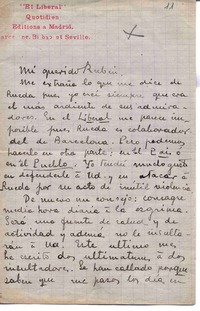 "El Liberal"
Quotidien
Editions a Madrid,
Barcelone, Bilbao et Seville.
11
Mi querido Rubén:
Me extraña lo que me dice de
Rueda pues, yo creí siempre que era
el más ardiente de sus admira-
dores. En el Liberal me parece im-
posible pues, Rueda es colaborador
del de Barcelona. Pero podemos
hacerlo en otra parte: en El País o
en El Pueblo. Yo tendré mucho gusto
en defenderle á Ud. y en atacar á
Rueda por su acto de inútil violencia
Un consejo: consagre
media hora diaria á la esgrima.
Será una fuente de salud y de
actividad y además no le insulta-
rán á Ud. Este último mes,
he escrito dos ultimatums, á dos
insultadores. Se han callado porque
saben que me paso los días en